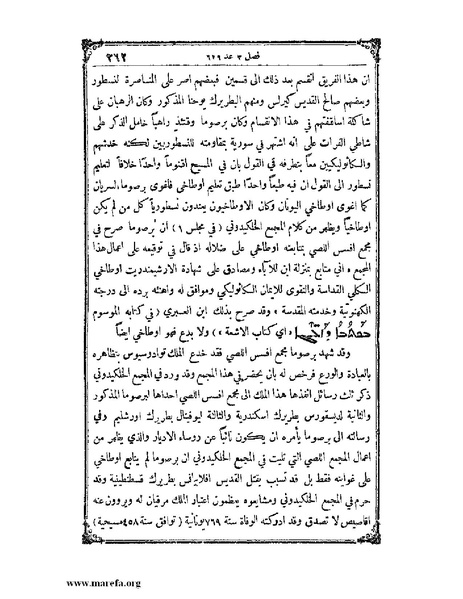 فصل ٣ عد ٦٢٩ ٣٦٢
ان هذا الفريق انقسم بعد ذلك الى قسمين فبعضهم اصر على المناصرة لنسطور
وبعضهم صالح القديس كيرلس ومنهم البطريرك يوحنا المذكور وكان الرهبان على
شاكلة اساقفتهم في هذا الانقسام وكان برصوما وقتئذ راهباً خامل الذكر على
شاطي الفرات على انه اشتهر في سورية بمقاومته للنسطوريين لكنه خدشهم
والكاثوليكيين معاً بتطرفه في القول بان في المسيح اقنوماً واحداً خلافاً لتعليم
نسطور الى القول ان فيه طبعاً واحداً طبق تعليم اوطاخي فاغوى برصوما السريان
كما اغوى اوطاخي اليونان وكان الاوطاخيون يعتدون نسطورياً كل من لم يكن
اوطاخياً ويظهر من كلام المجمع الخلكيدوني (في مجلس ١) ان برصوما صرح في
مجمع افسس اللصي بمتابعته اوطاهي على ضلاله اذ قال في توقيعه على اعمال هذا
المجمع « اني متابع بمنزلة ابن للآباء ومصادق على شهادة الارشيمندريت اوطاخي
الكلي القداسة والتقوى للايمان الكاثوليكي وموافق له واهنئه برده الى درجته
الكهنوتية وخدمته المقدسة » وقد صرح بذلك ابن العبري (في كتابه الموسوم
« اي كتاب الاشعة ») ولا بدع فهو اوطاخي ايضاً
وقد شهد برصوما مجمع افسس اللصي فقد خدع الملك توادوسيوس بتظاهره
بالعبادة والورع فرخص له بان يحضر في هذا المجمع وقد ورد في المجمع الخلكيدوني
ذكر ثلث رسائل انفذها هذا الملك الى مجمع افسس اللصي احداها لبرصوما المذكور
والثانية لديسقورس بطريرك اسكندرية والثالثة ليوفينال بطريرك اورشليم وفي
رسالته الى برصوما يأمره ان يكون نائباً عن روساء الاديار والذي يظهر من
اعمال المجمع اللصي التي تليت في المجمع الخلكيدوني ان برصوما لم يتابع اوطاخي
على غوايته فقط بل قد تسبب بقتل القديس افلابيانس بطريرك قسطنطينية وقد
حرم في المجمع الخلكيدوني ومشايعوه يعظمون اعتبار الملك مرقيان له ويروون عنه
اقاصيص لا تصدق وقد ادركته الوفاة سنة ٧٦٩ يونانية (توافق سنة ٤٥٨ مسيحية)
www.marefa.org